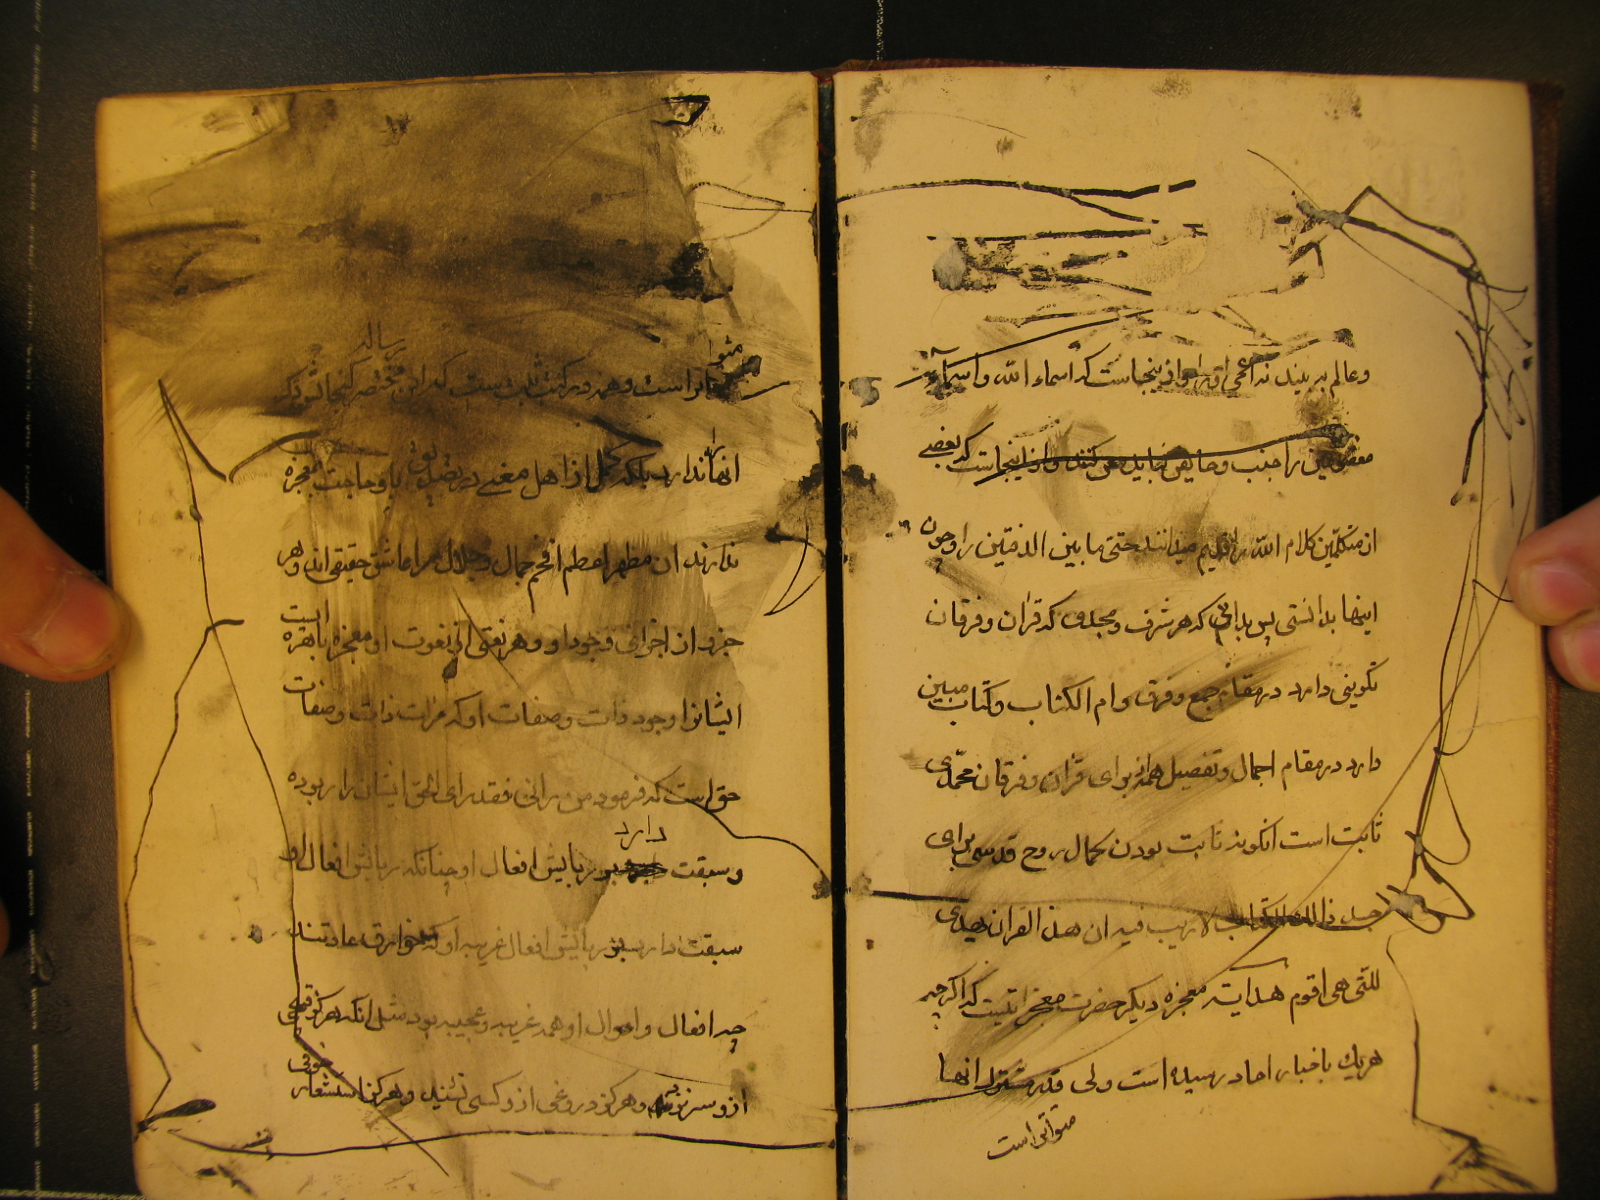 وعالم به بیند نه اعمی و از ینجاست که اسماء الله و اسماء
معصومین را جنب و حایض نباید مس کنند و از اینجاست که بعضی
از متکلمین کلام الله را قدیم میدانند حتی ما بین الدفتین را و چون
اینها بدانستی پس بدانکه هر شرف و مجدی که قران و فرقان
تکوینی دارد در مقام جمع و فرق و ام الکتاب و کتاب مبین
دارد در مقام اجمال و تفصیل همه از برای قران و فرقان محمدی
ثابت است انکونه ثابت بودن کمال روح قدسی برای
جسد ذالك الکتاب لاریب فیه ان هذا القران یهدی
للتی هی اقوم هدایة معجزه دیگر حضرت معجزاتیست که اگر چه
هریك باخبار احاد رسیده است ولی قدر مشترك انها
متواتر است
رساله
است و همه در کتب ثبت است که این مختصر گنجایش ذکر
انها را ندارد بلکه کمل از اهل معنی در تصدیق باو حاجت بمعجزه
ندارند ان مظهر اعظم افخم جمال و جلال را عاشق حقیقی اند و هر
جزو از اجزای وجود او و هر نعتی از نعوت او معجزه باهره است
ایشانرا وجود ذات و صفات او که مرات ذات و صفات
حق است که فرمود من رانی فقد رای الحق ایشان را ربوده
و سبقت دارد بر ربایش افعال او چنانکه ربایش افعال او
سبقت دارد بر ربایش افعال غریبه او که خوارق عادتند
چه افعال و احوال او همه غریبه و عجیبه بود مثل انکه هرگز قبیحی
از او سر نزد و هرگز دروغی از او کسی نشنید و هرگز استشعار
خوفی